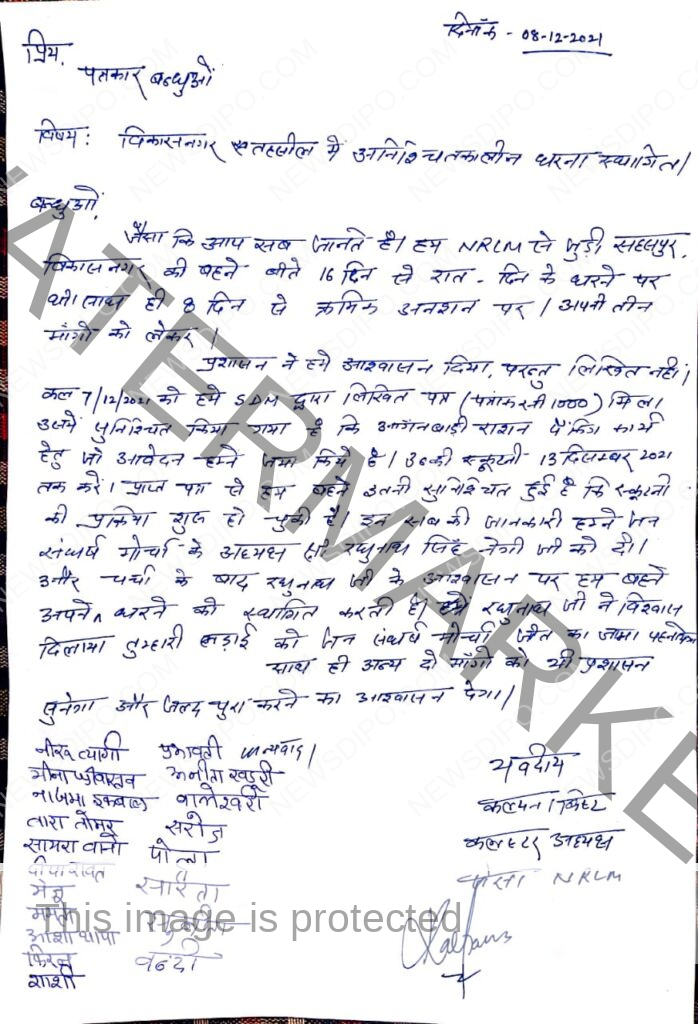 दिनाँक - 08-12-2021
प्रिय,
पत्रकार बन्धुओं
विषय: विकासनगर तहसील में अनिश्चितकालीन धरना स्थगित।
बन्धुओं,
जैसा कि आप सब जानते है। हम NRLM से जुड़ी सहसपुर,
विकासनगर की बहने बीते 16 दिन से रात - दिन के धरने पर
थी साथ ही 8 दिन से क्रमिक अनशन पर। अपनी तीन
माँगो को लेकर।
प्रशासन ने हमे आश्वासन दिया, परन्तु लिखित नही।
कल 7/12/2021 को हमे SDM द्वारा लिखित पत्र (पत्रांक 1000) मिला
उसमें सुनिश्चित किया गया है कि आंगनबाड़ी राशन पैकिंग कार्य
हेतु जो आवेदन हमने जमा किये है। उनकी स्कूटनी 13 दिसम्बर 2021
तक करे। प्राप्त पत्र से हम बहने इतनी सुनिश्चित हुई है कि स्कूटनी
की प्रक्रिया शुरू हो चुकी है। इन सब की जानकारी हमने जन
संघर्ष मोर्चा के अध्यक्ष श्री रघुनाथ सिंह नेगी जी को दी।
और चर्चा के बाद रघुनाथ जी के आश्वासन पर हम बहने
अपने धरने को स्थगित करती है। हमे रघुनाथ जी ने विश्वास
दिलाया तुम्हारी लड़ाई को जन संघर्ष मोर्चा जीत का जामा
साथ ही अन्य दो माँगो को भी प्रशासन
सुनेगा और जल्द पुरा करने का आश्वासन देगा।
नीरू त्यागी प्रभावती धन्यवाद।
मीना श्रीवास्तव अनीता खडूरी
नाजमा इकबाल वालेश्वरी
तारा तोमर सरोज
सायरा वानो पोला
मंजू सरिता
ममता
आशा थापा वन्दी
किरन
शाशी
भवदीय
कल्पना बिष्ट
कलस्टर अध्यक्ष
NRLM
Kalpana
WATERMARKED
This image is protected
NEWSDIPO.COM